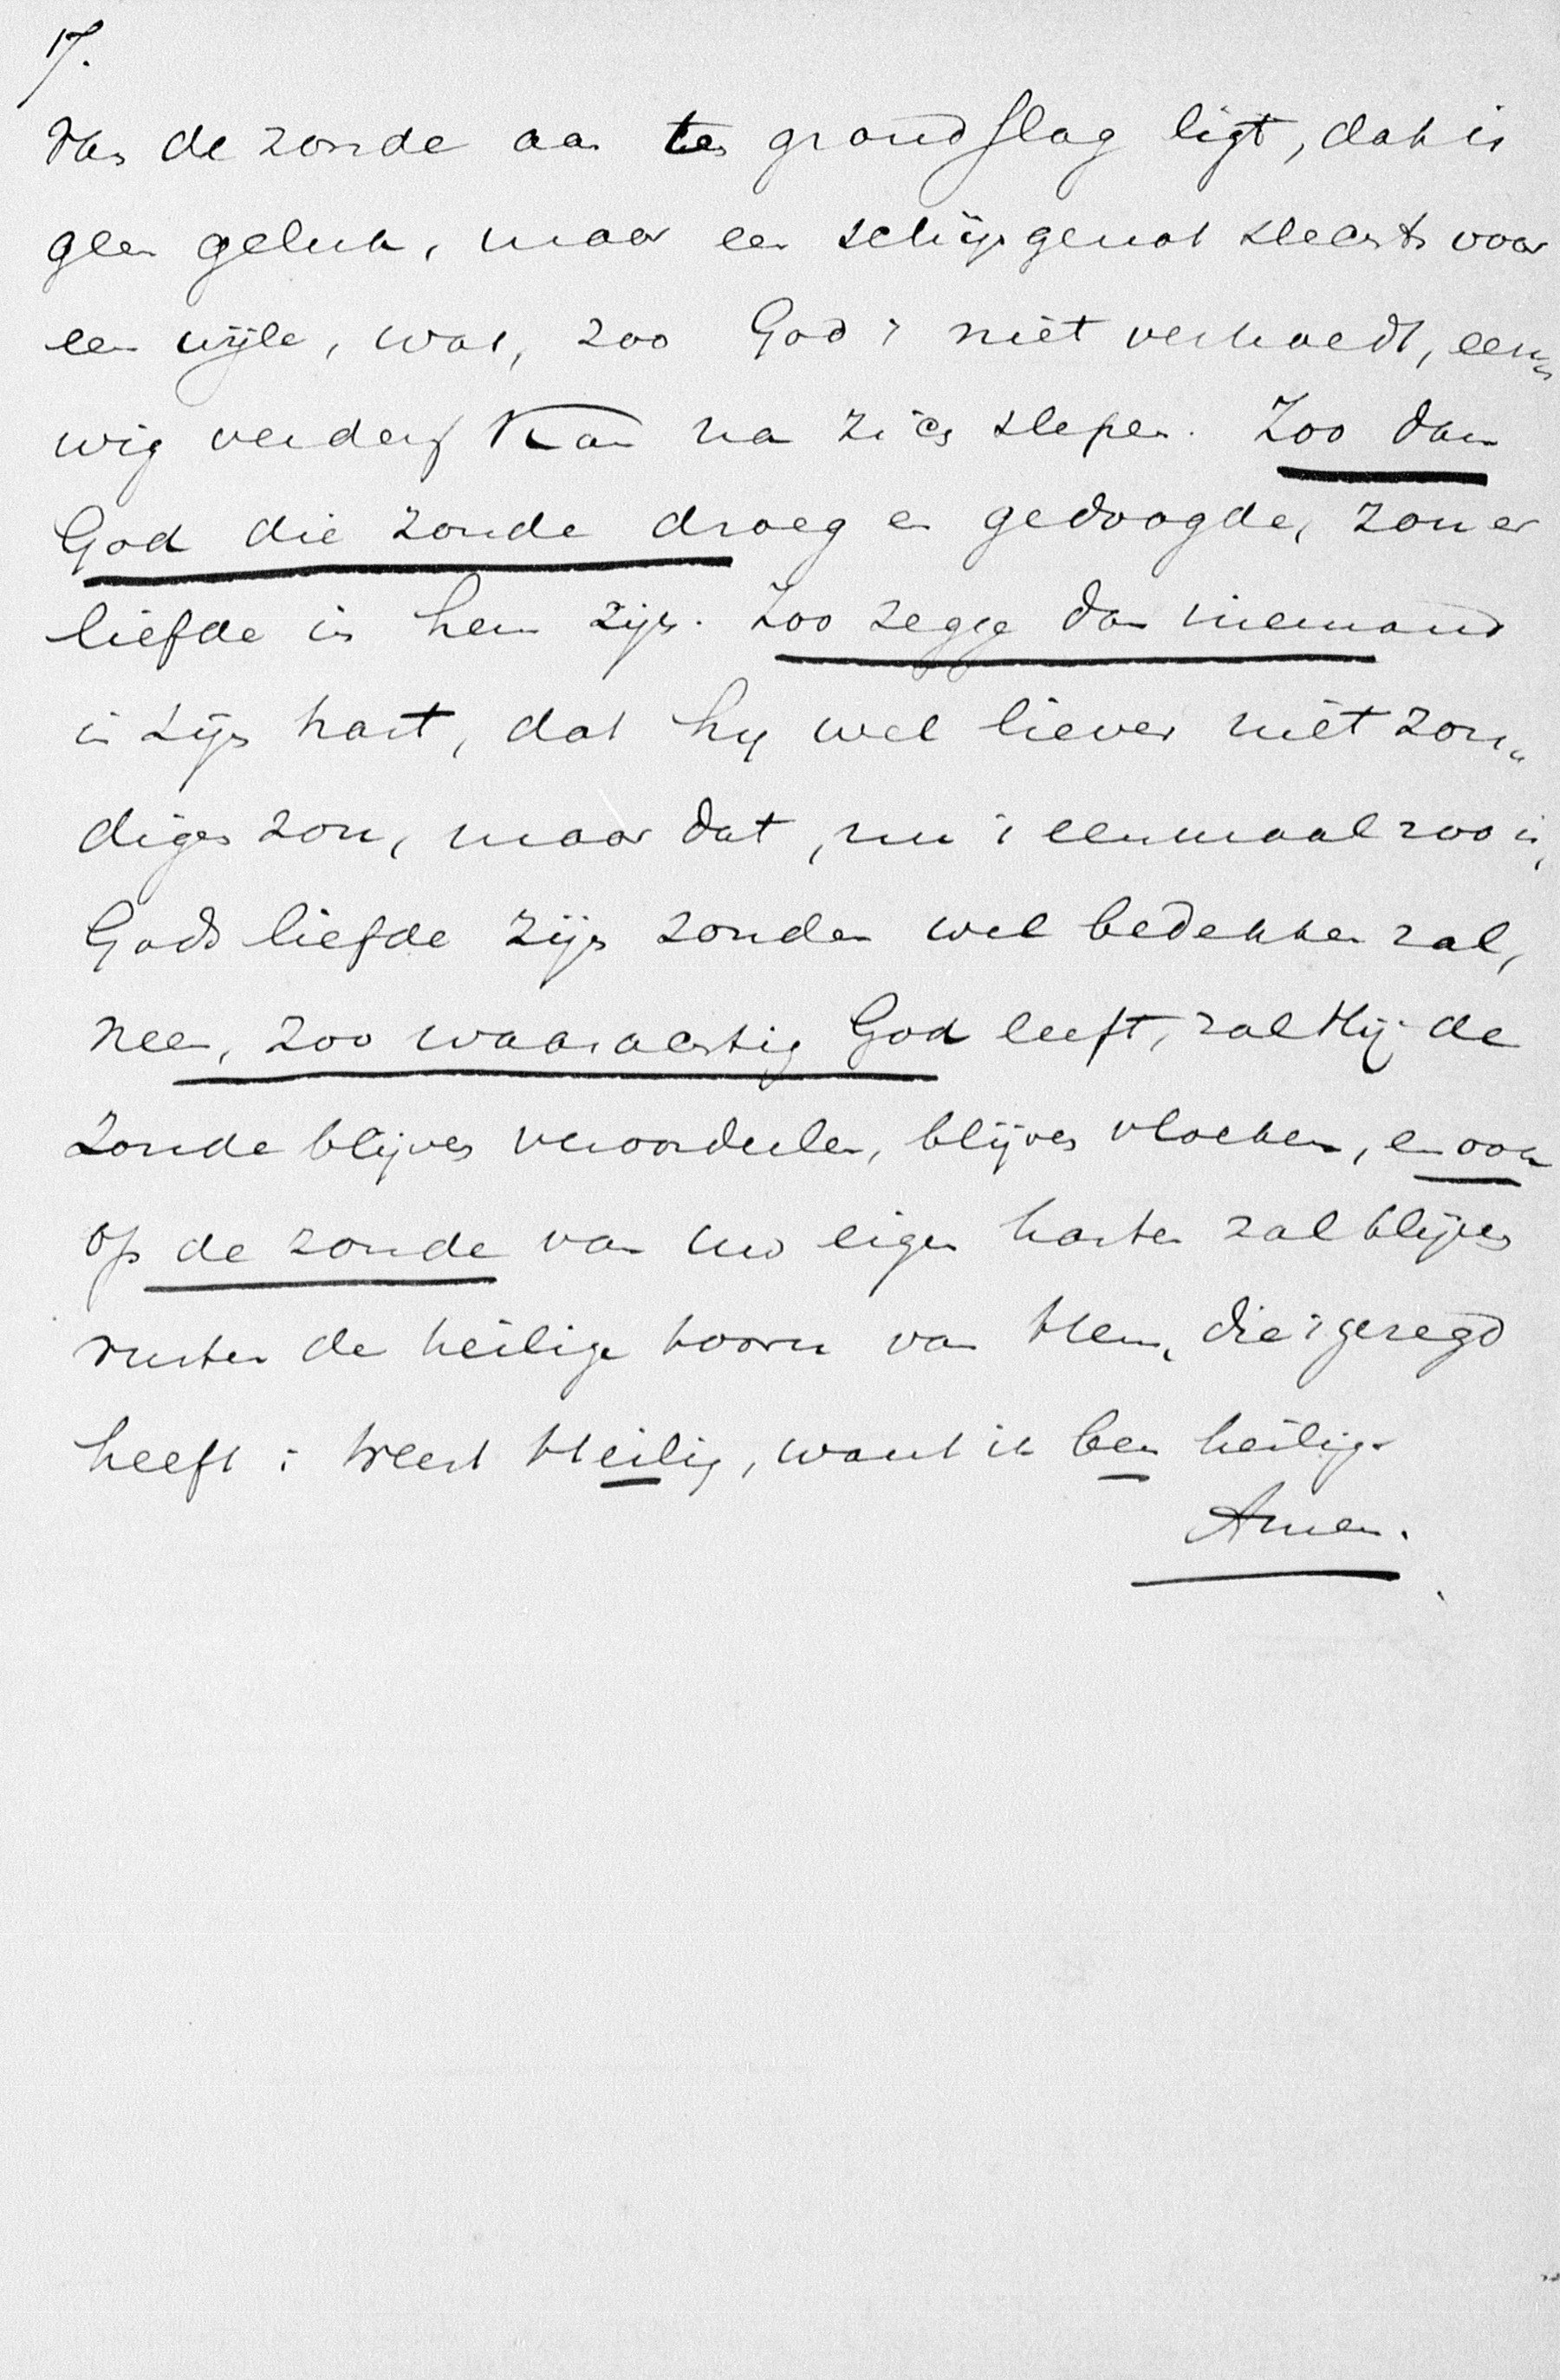 17.
van de zonde aan ten grondslag ligt, dat is
geen geluk, maar een schijngenot slechts voor
een wijle, wat, zoo God 't niet verhoedt, eeu„
wig verderf kan na zich slepen. Zoo dan
God die zonde droeg en gedoogde, zou er
liefde in hem zijn. Zoo zegge dan niemand
in zijn hart, dat hij wel liever niet zon„
digen zou, maar dat, nu 't eenmaal zoo is,
Gods liefde zijn zonden wel bedekken zal,
neen, zoo waarachtig God leeft, zal Hij de
zonde blijven veroordeelen, blijven vloeken, en ook
op de zonde van uw eigen harten zal blijven
rusten de heilige toorn van Hem, die 't gezegd
heeft: Weest Heilig, want ik ben heilig.
Amen.